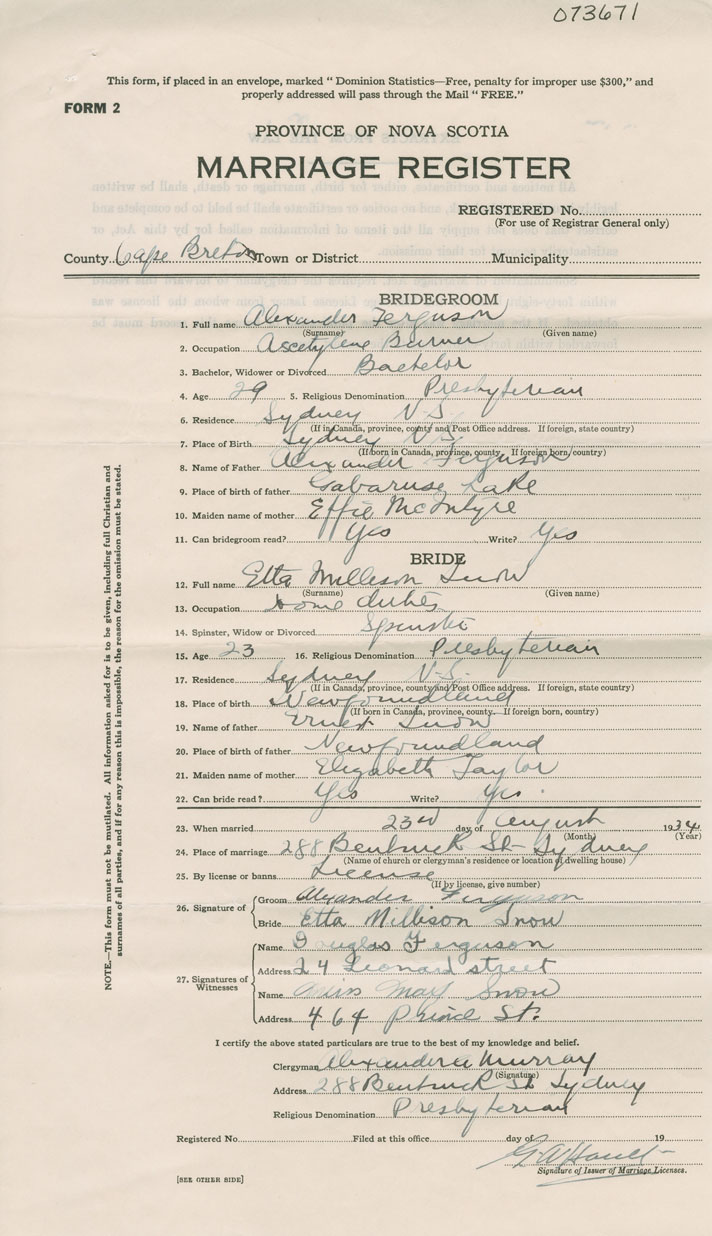 073671
This form, if placed in an envelope, marked "Dominion Statistics—Free, penalty for improper use $300," and
properly addressed will pass through the Mail "FREE."
FORM 2
PROVINCE OF NOVA SCOTIA
MARRIAGE REGISTER
REGISTERED No.
(For use of Registrar General only)
County Cape Breton Town or District Municipality
BRIDEGROOM
1. Full name Alexander Ferguson
(Surname) (Given name)
2. Occupation Ascetylene Burner
3. Bachelor, Widower or Divorced Bachelor
4. Age 29 5. Religious Denomination Presbyterian
6. Residence Sydney N.S.
(If in Canada, province, county and Post Office address. If foreign, state country)
7. Place of Birth Sydney N.S.
(If born in Canada, province, county. If foreign born, country)
8. Name of Father Alexander Ferguson
9. Place of birth of father Gabaruse Lake
10. Maiden name of mother Effie McIntyre
11. Can bridegroom read? Yes Write? Yes
BRIDE
12. Full name Etta Millison Snow
(Surname) (Given name)
13. Occupation Home duties
14. Spinster, Widow or Divorced Spinster
15. Age 23 16. Religious Denomination Presbyterian
17. Residence Sydney N.S.
(If in Canada, province, county and Post Office address. If foreign, state country)
18. Place of birth Newfoundland
(If born in Canada, province, county. If foreign born, country)
19. Name of father Ernest Snow
20. Place of birth of father Newfoundland
21. Maiden name of mother Elizabeth Taylor
22. Can bride read? Yes Write? Yes
23. When married 23rd day of August 1934
(Month) (Year)
24. Place of marriage 288 Bentinck St Sydney
(Name of church or clergyman's residence or location of dwelling house)
25. By license or banns License
(If by license, give number)
26. Signature of Groom Alexander Ferguson
Bride Etta Millison Snow
27. Signatures of Witnesses Name Douglas Ferguson
Address 24 Leonard street
Name Miss May Snow
Address 464 Prince St.
I certify the above stated particulars are true to the best of my knowledge and belief.
Clergyman Alexander Murray
(Signature)
Address 288 Bentinck St Sydney
Religious Denomination Presbyterian
Registered No. Filed at this office day of 19
Signature of Issuer of Marriage Licenses.
[SEE OTHER SIDE]
NOTE.—This form must not be mutilated. All information asked for is to be given, including full Christian and
surnames of all parties, and if for any reason this is impossible, the reason for the omission must be stated.